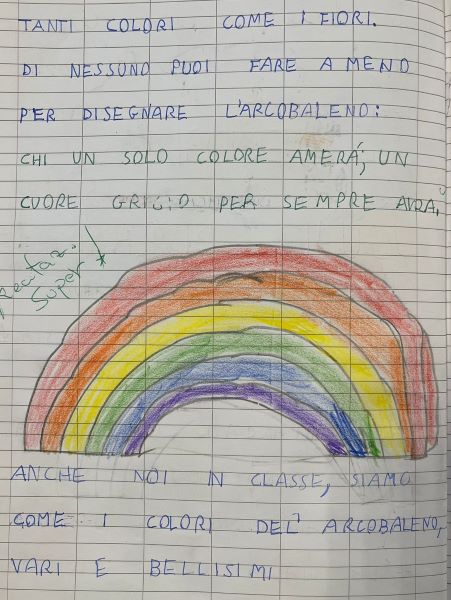 TANTI COLORI COME I FIORI.
DI NESSUNO PUOI FARE A MENO
PER DISEGNARE L'ARCOBALENO:
CHI UN SOLO COLORE AMERÁ, UN
CUORE GRIGIO PER SEMPRE AVRÁ.
Super!
ANCHE NOI IN CLASSE, SIAMO
COME I COLORI DEL' ARCOBALENO,
VARI E BELLISIMI